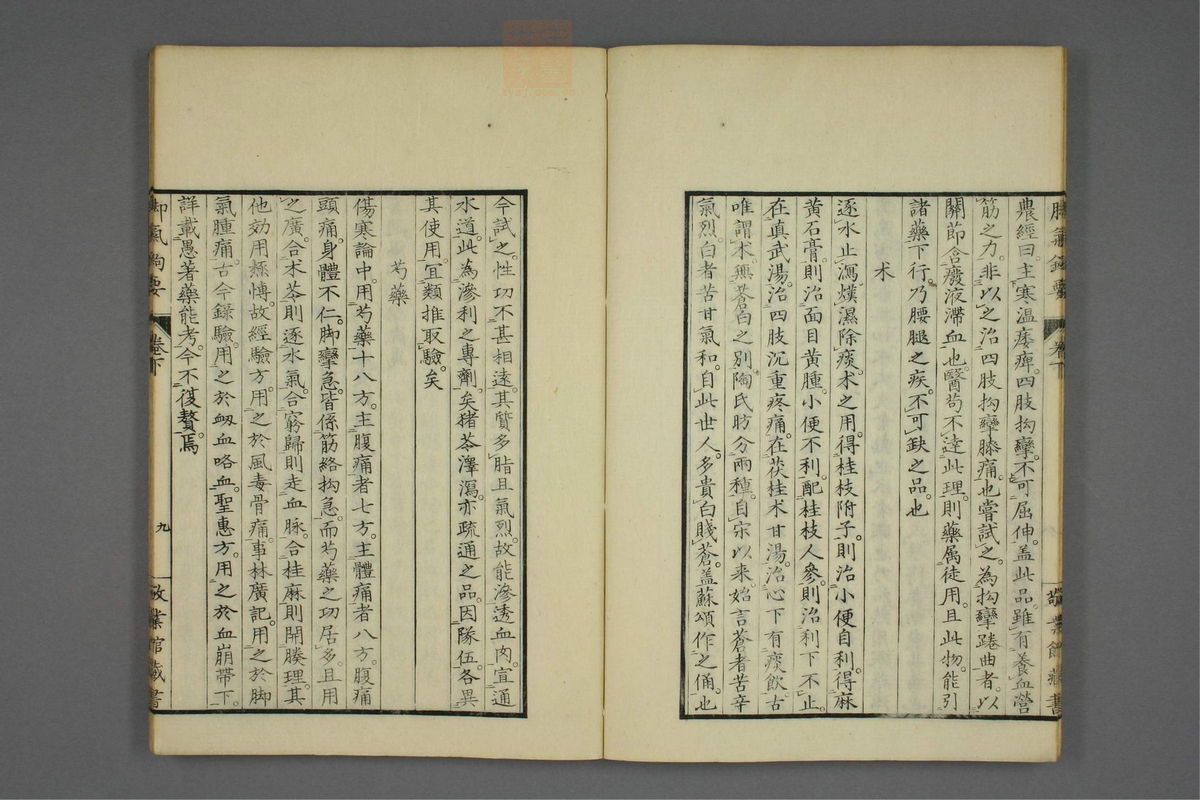 農經曰。主寒濕痿痺。四肢拘攣。不可屈伸。蓋此品雖有養血營
筋之力。非以之治四肢拘攣膝痛也。嘗試之。為拘攣踡曲者。以
關節含癈液滯血也。醫苟不達此理。則藥属徒用。且此物。能引
諸藥下行。乃腰腿之疾。不可缺之品也
朮
逐水止瀉。燥濕除痰。朮之用。得桂枝附子。則治小便自利。得麻
黄石膏。則治面目黄腫。小便不利。配桂枝人參。則治利下不止。
在真武湯。治四肢沉重疼痛。在茯桂朮甘湯。治心下有痰飲。古
唯謂朮。無蒼白之別。陶氏昉分兩種。自宋以来。始言蒼者苦辛
氣烈。白者苦甘氣和。自此世人。多貴白賤蒼。蓋蘇頌作之俑也
今試之。性功不甚相遠。其質多脂且氣烈。故能滲透血肉。宣通
水道。此為滲利之專劑矣。猪苓澤瀉。亦疏通之品。因隊伍。各異
其使用。宜類推取驗。矣
芍藥
傷寒論中。用芍藥十八方。主腹痛者七方。主體痛者八方。腹痛
頭痛。身體不仁。脚攣急。皆係筋絡拘急。而芍藥之功居多。且用
之廣。合朮苓則逐水氣。合窮歸則走血脉。合桂麻則開腠理。其
他効用繁愽。故經驗方。用之於風毒骨痛。事林廣記。用之於脚
氣腫痛。古今錄驗。用之於衂血咯血。聖惠方。用之於血崩帶下。
詳載愚著藥能考。今不復贅焉
卷下
九
敬業館藏書